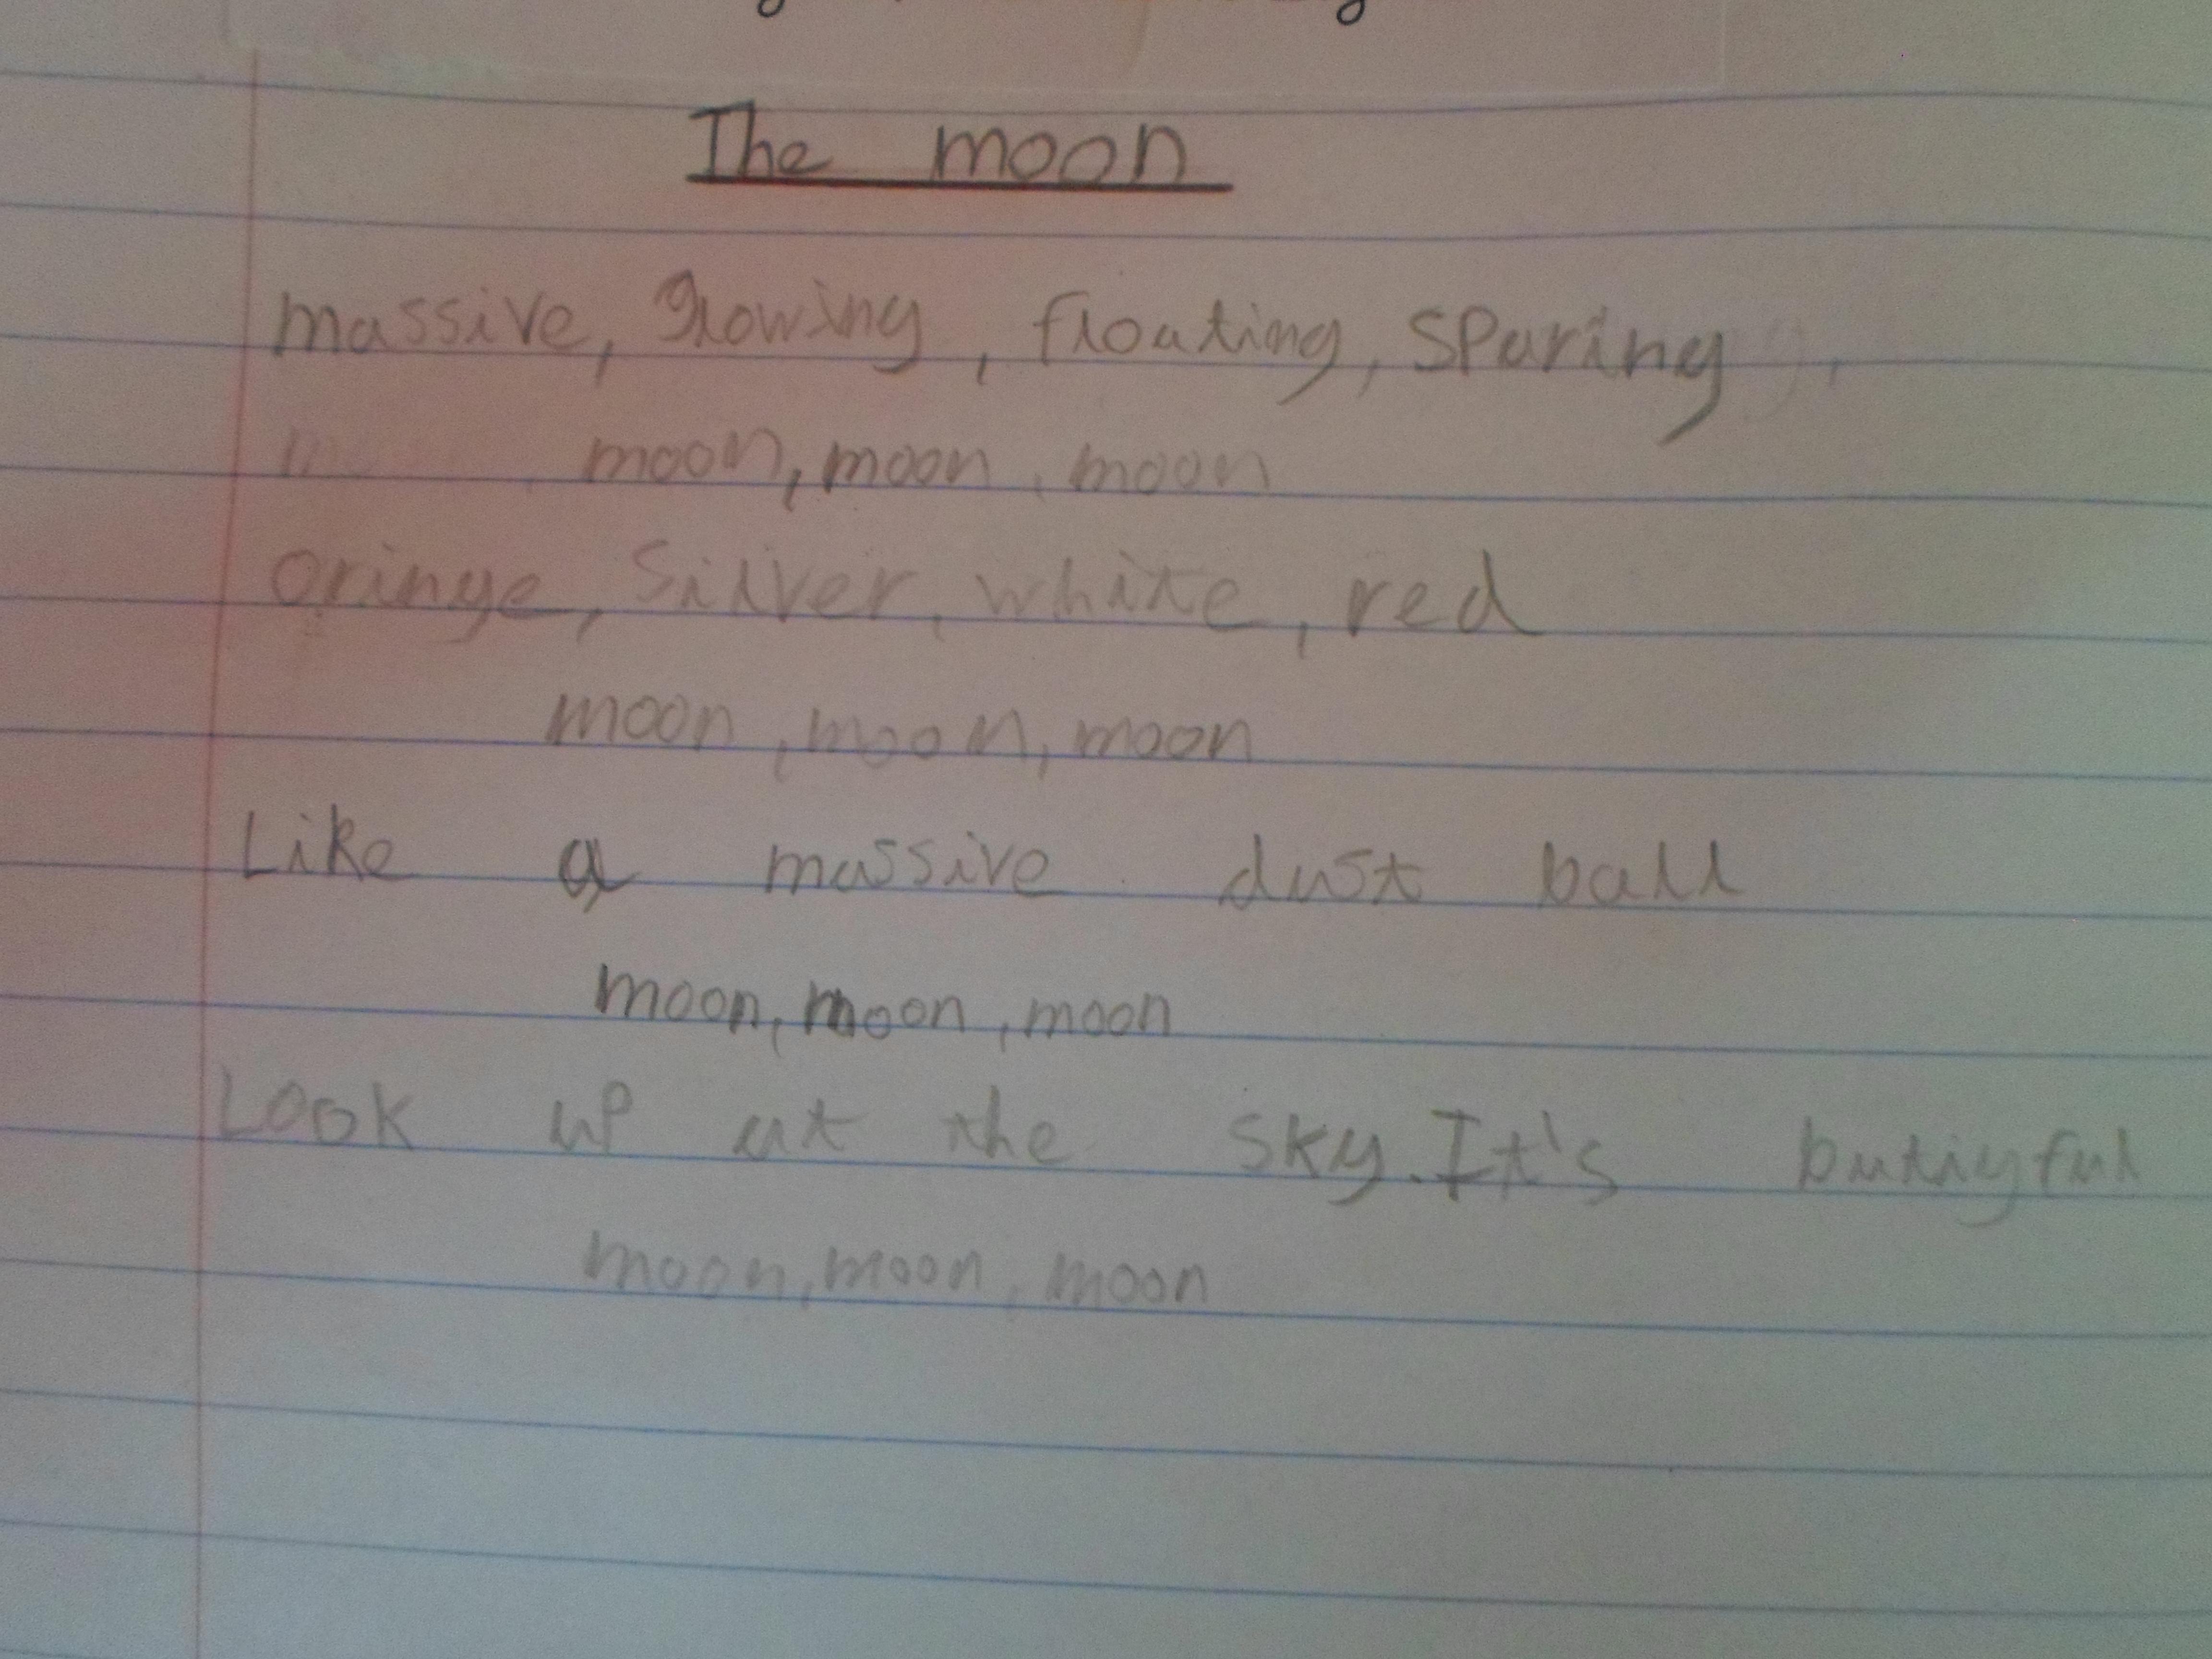 The moon
massive, glowing, floating, sparing,
moon, moon, moon
oringe, silver, white, red
moon, moon, moon
Like a massive dust ball
moon, moon, moon
Look up at the sky. It's butiyful
moon, moon, moon